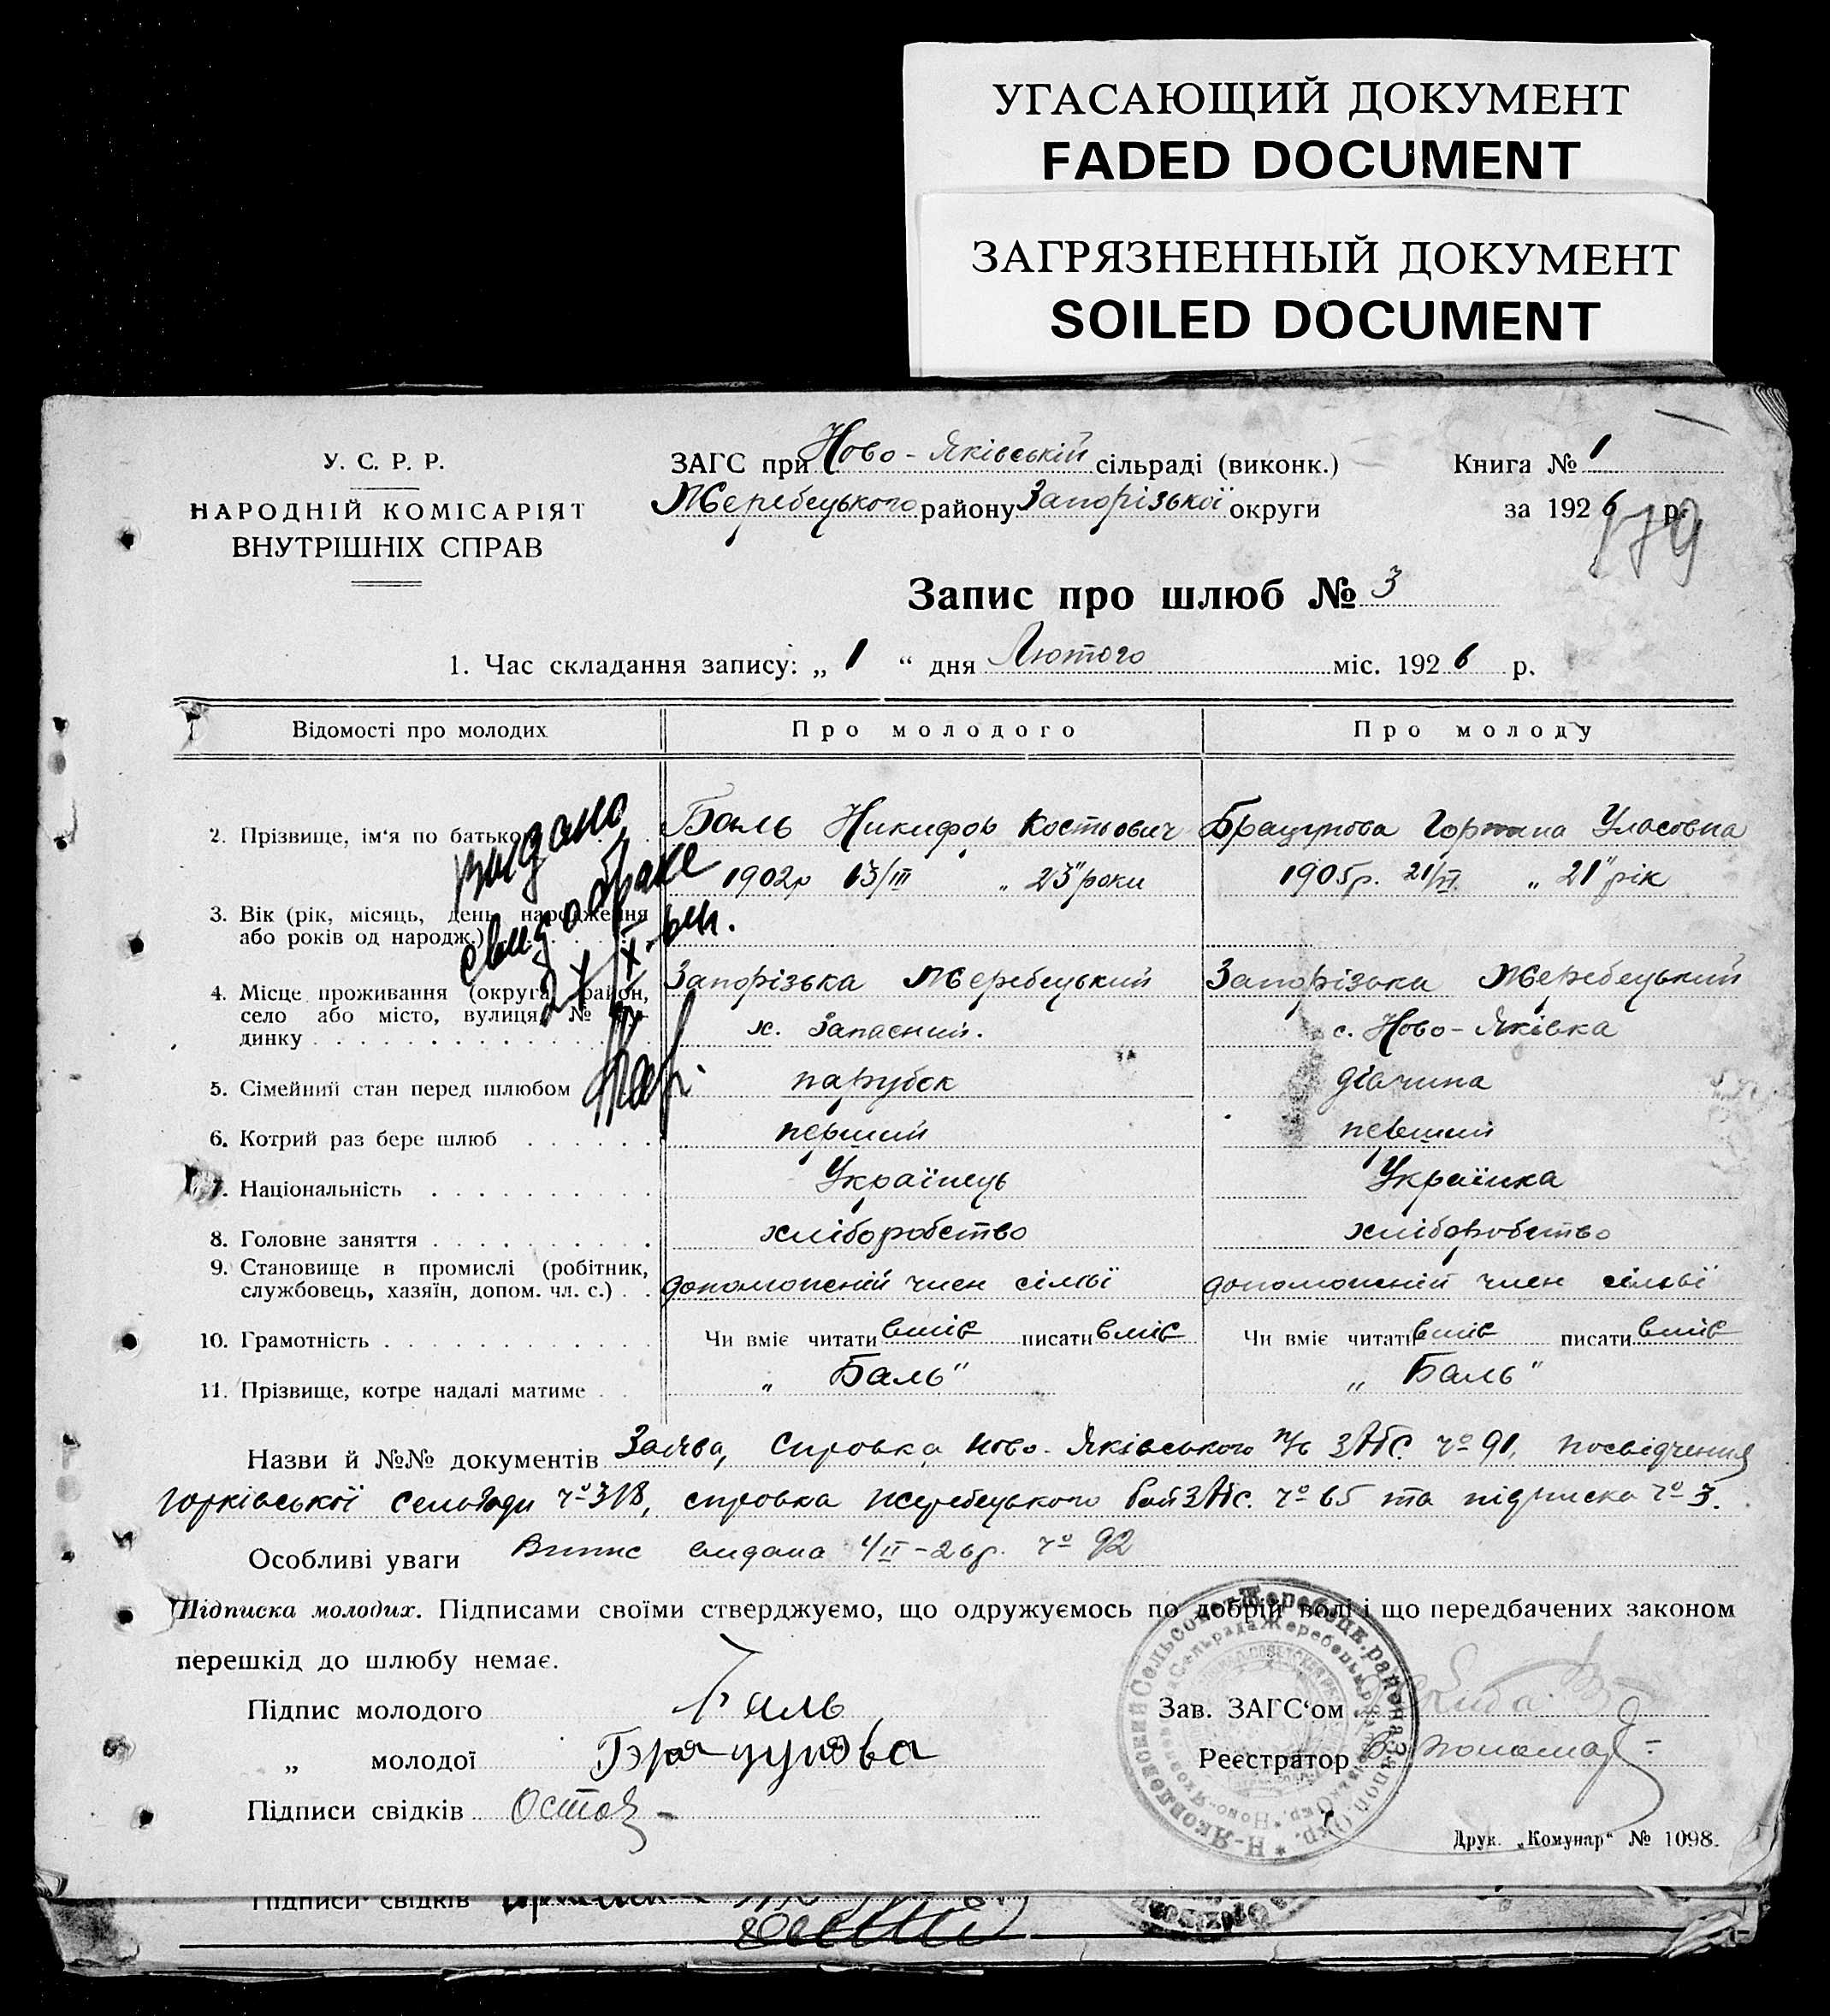 УГАСАЮЩИЙ ДОКУМЕНТ
FADED DOCUMENT
ЗАГРЯЗНЕННЫЙ ДОКУМЕНТ
SOILED DOCUMENT
У. С. Р. Р.
НАРОДНІЙ КОМІСАРІЯТ
ВНУТРІШНІХ СПРАВ
ЗАГС при Ново-Яківській сільраді (виконк.)
Жеребецького району Запорізької округи
Книга № 1
за 1926 р.
179
Запис про шлюб № 3
1. Час складання запису: „ 1 “ дня Лютого міс. 1926 р.
Відомості про молодих
Про молодого
Про молоду
2. Прізвище, ім'я по батькові
Баль Никифор Костьович
Брацунова Горпина Уласовна
3. Вік (рік, місяць, день народження
або років од народж.)
1902р 13/III „23" роки
1905р. 21/VI. „21" рік
4. Місце проживання (округа, район,
село або місто, вулиця, № бу-
динку
Запорізька Жеребецький
х. Запасний.
Запорізька Жеребецький
с. Ново-Яківка
5. Сімейний стан перед шлюбом
парубок
дівчина
6. Котрий раз бере шлюб
перший
перший
7. Національність
Українець
Українка
8. Головне заняття
хліборобство
хліборобство
9. Становище в промислі (робітник,
службовець, хазяїн, допом. чл. с.)
допоможній член сімьї
допоможній член сімьї
10. Грамотність
Чи вміє читати вміє писати вміє
Чи вміє читати вміє писати вміє
11. Прізвище, котре надалі матиме
„Баль"
„Баль"
видано
свид о браке
Назви й №№ документів Заява, справка Ново-Яківського п/в ЗАГС. ч° 91, посвідчення
Горківської сельради ч° 318, справка Жеребецького ЗАГС. ч° 65 та підписка ч° 3.
Особливі уваги Випис видана 4/II-26р. ч° 92
Підписка молодих. Підписами своїми стверджуємо, що одружуємось по добрій волі і що передбачених законом
перешкід до шлюбу немає.
Підпис молодого Баль
„ молодої Брацунова
Підписи свідків
Зав. ЗАГС'ом
Реєстратор
Н-Яковлевский Сельсовет Жеребецк. района Запор. Окр.
Друк. „Комунар“ № 1098.
Підписи свідків